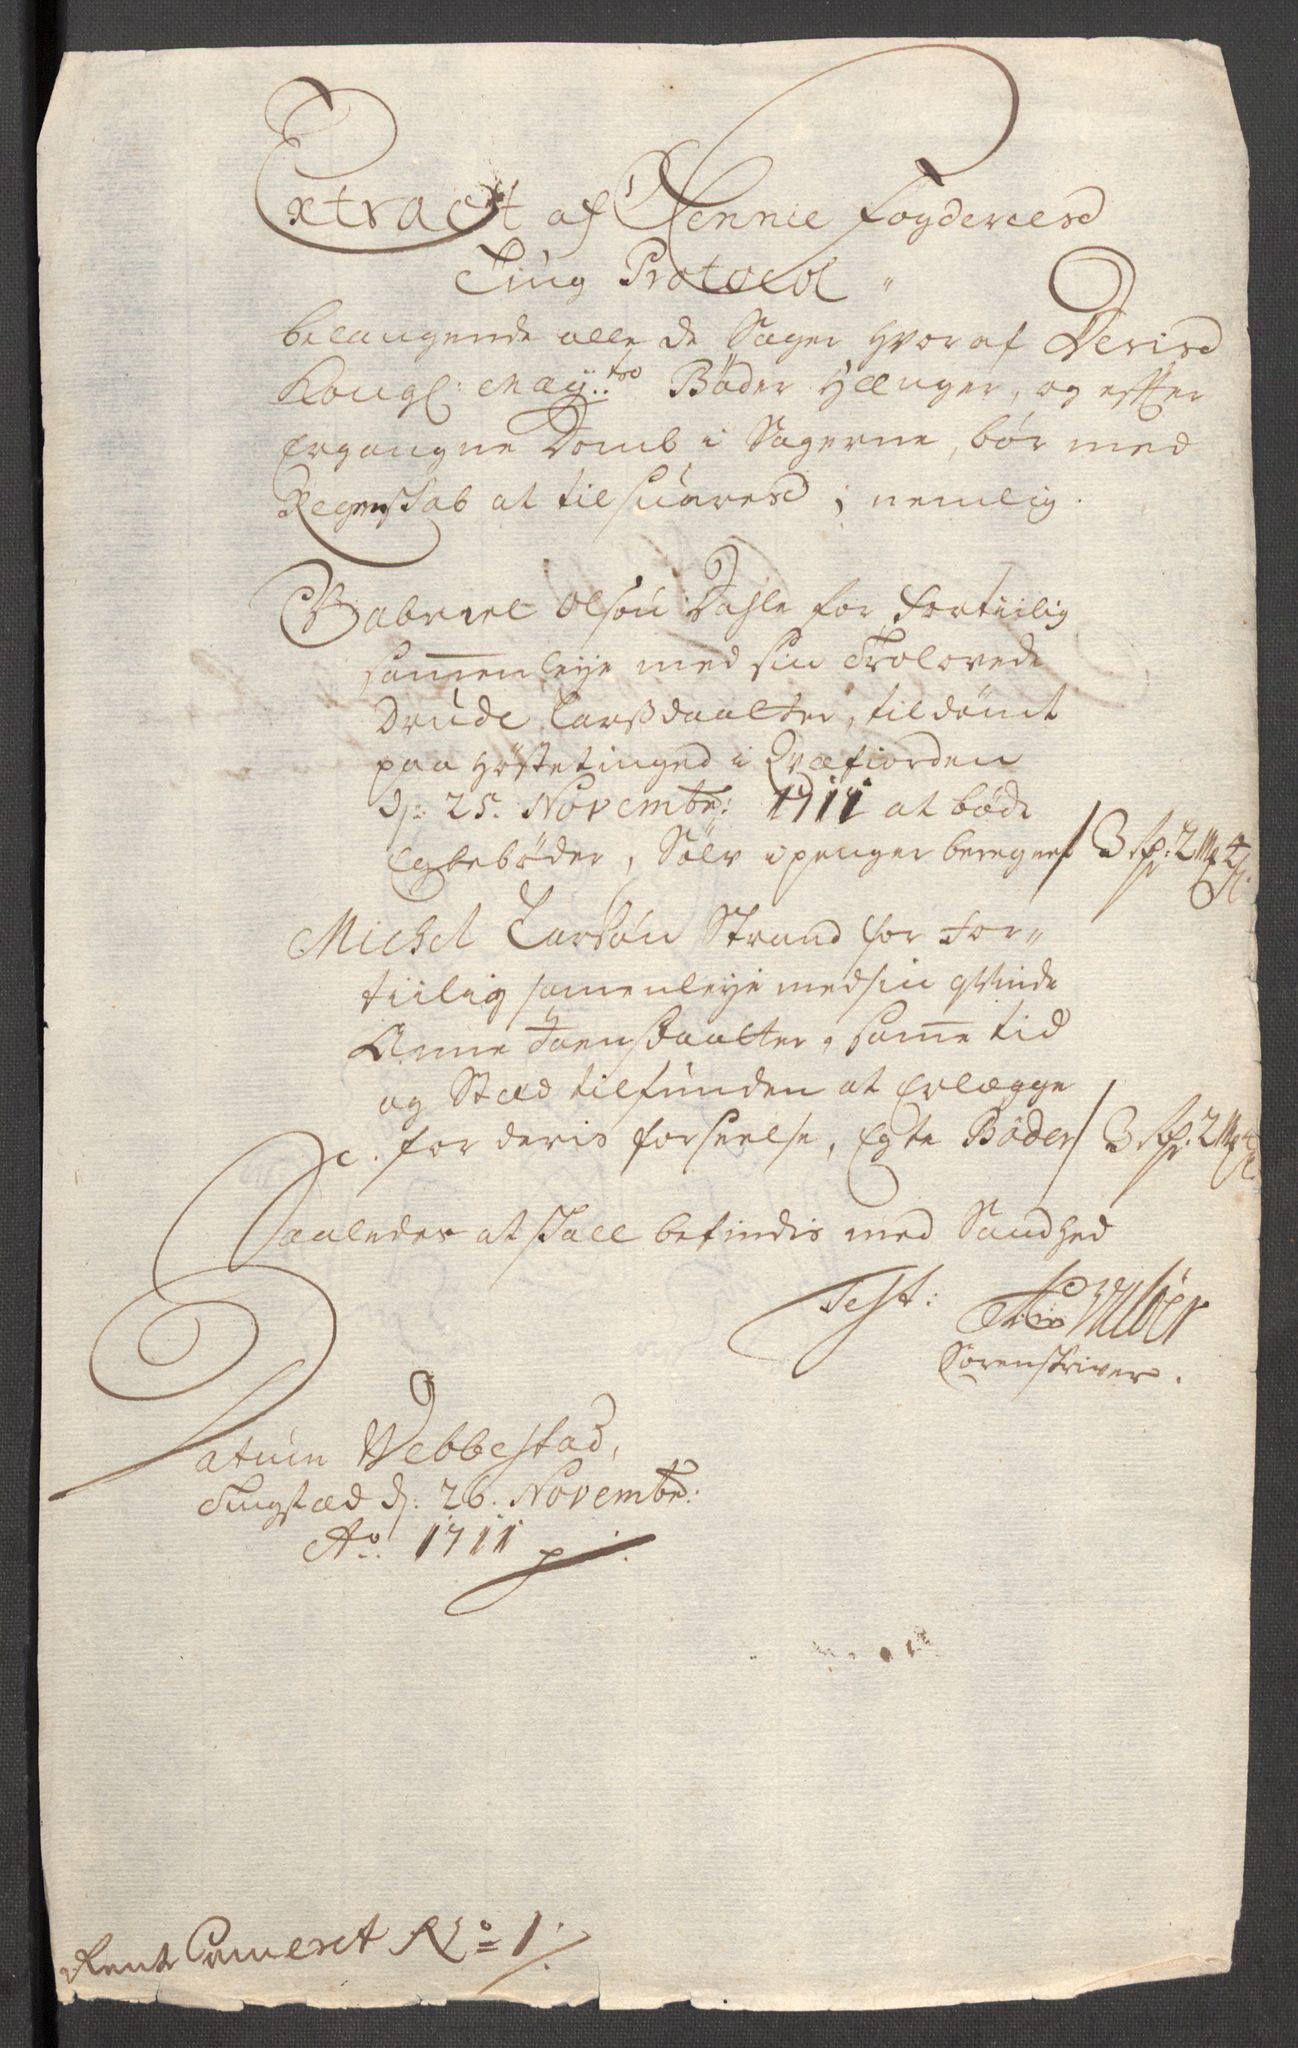 Extract af Sennie Fogderies
Ting Protocol
belangende alle de Sager hvoraf Deris
Kongl: May:ts Böder Hænger, og effter
Ergangne Domb i Sagerne, bør med
Regenskab at tilsuares; nemlig.
Gabriel Olsøn Dahle for fortiilig
sammenleye med sin Trolovede
Drude Larsdaatter, tildømt
paa Høstetinged i Qvæfiorden
d: 25. Novembr: 1711 at bøde
Egtebøder, Sölv i penger beregnet / 3 rp: 2 mk 4 s.
Michel Larsøn Strand for For-
tiilig samenleye med sin qvinde
Anne Joensdaatter, samme tid
og Stæd tilfunden at Erlægge
for deris forseelse, Egte Böder / 3 rp: 2 mk 4 s.
Saaledes at skall befindis med Sandhed
Test:
Sorenskriver.
Datum Webbestad,
Tingstæd d: 26. Novembr:
Ao: 1711
Rente Cameret No 1.